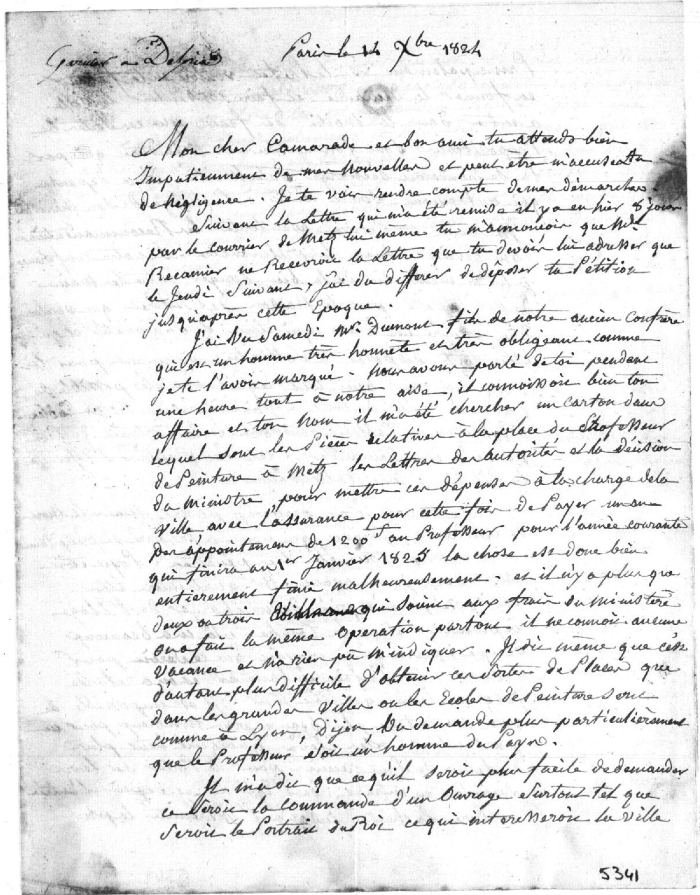 Paris le 14 Xbre 1824
Garnier à
Mon cher Camarade et bon ami tu attends bien
Impatiemment de mes nouvelles et peut être m'accuses tu
de Négligence. Je te vais rendre compte de mes démarches.
Suivant la Lettre qui m'a été remise il y a eu hier 8 jours
par le courrier de Metz lui même tu m'annonçois que Mde
Recamier ne Recevroit la Lettre que tu devois lui adresser que
le Jeudi Suivant, j'ai du differer de déposer ta Pétition
jusqu'après cette Epoque.
J'ai Vu Samedi Mr. Dumont fils de notre ancien Confrère
qui est un homme très honnete et très obligeant comme
je te l'avois marqué. nous avons parlé de toi pendant
une heure tout à notre aise, il connoissoit bien ton
affaire et ton Nom il m'a été chercher un carton dans
lequel sont les Pièces relatives à la place du Professeur
de Peinture à Metz les Lettres des autorités et la décision
du ministre pour mettre ces dépenses à la charge de la
Ville avec l'assurance pour cette fois de Payer un an
des appointemens de 1200 f au Professeur pour l'année courante
qui finira au 1er Janvier 1825 la chose est donc bien
entierement finie malheureusement. et il n'y a plus que
deux ou trois qui soient aux frais du ministère
on a fait la même operation partout il ne connoit aucune
vacance et n'a rien pu m'indiquer. Il dit même que c'est
d'autant plus difficile d'obtenir ces sortes de Places que
dans les grandes Villes ou les Ecoles de Peinture sont
comme à Lyon, Dijon on demande plus particulièrement
que le Professeur soit un homme du Pays.
Il m'a dit que ce qu'il seroit plus facile de demander
ce seroit la Commande d'un Ouvrage surtout tel que
seroit le Portrait du Roi ce qui interesseroit la Ville
5341